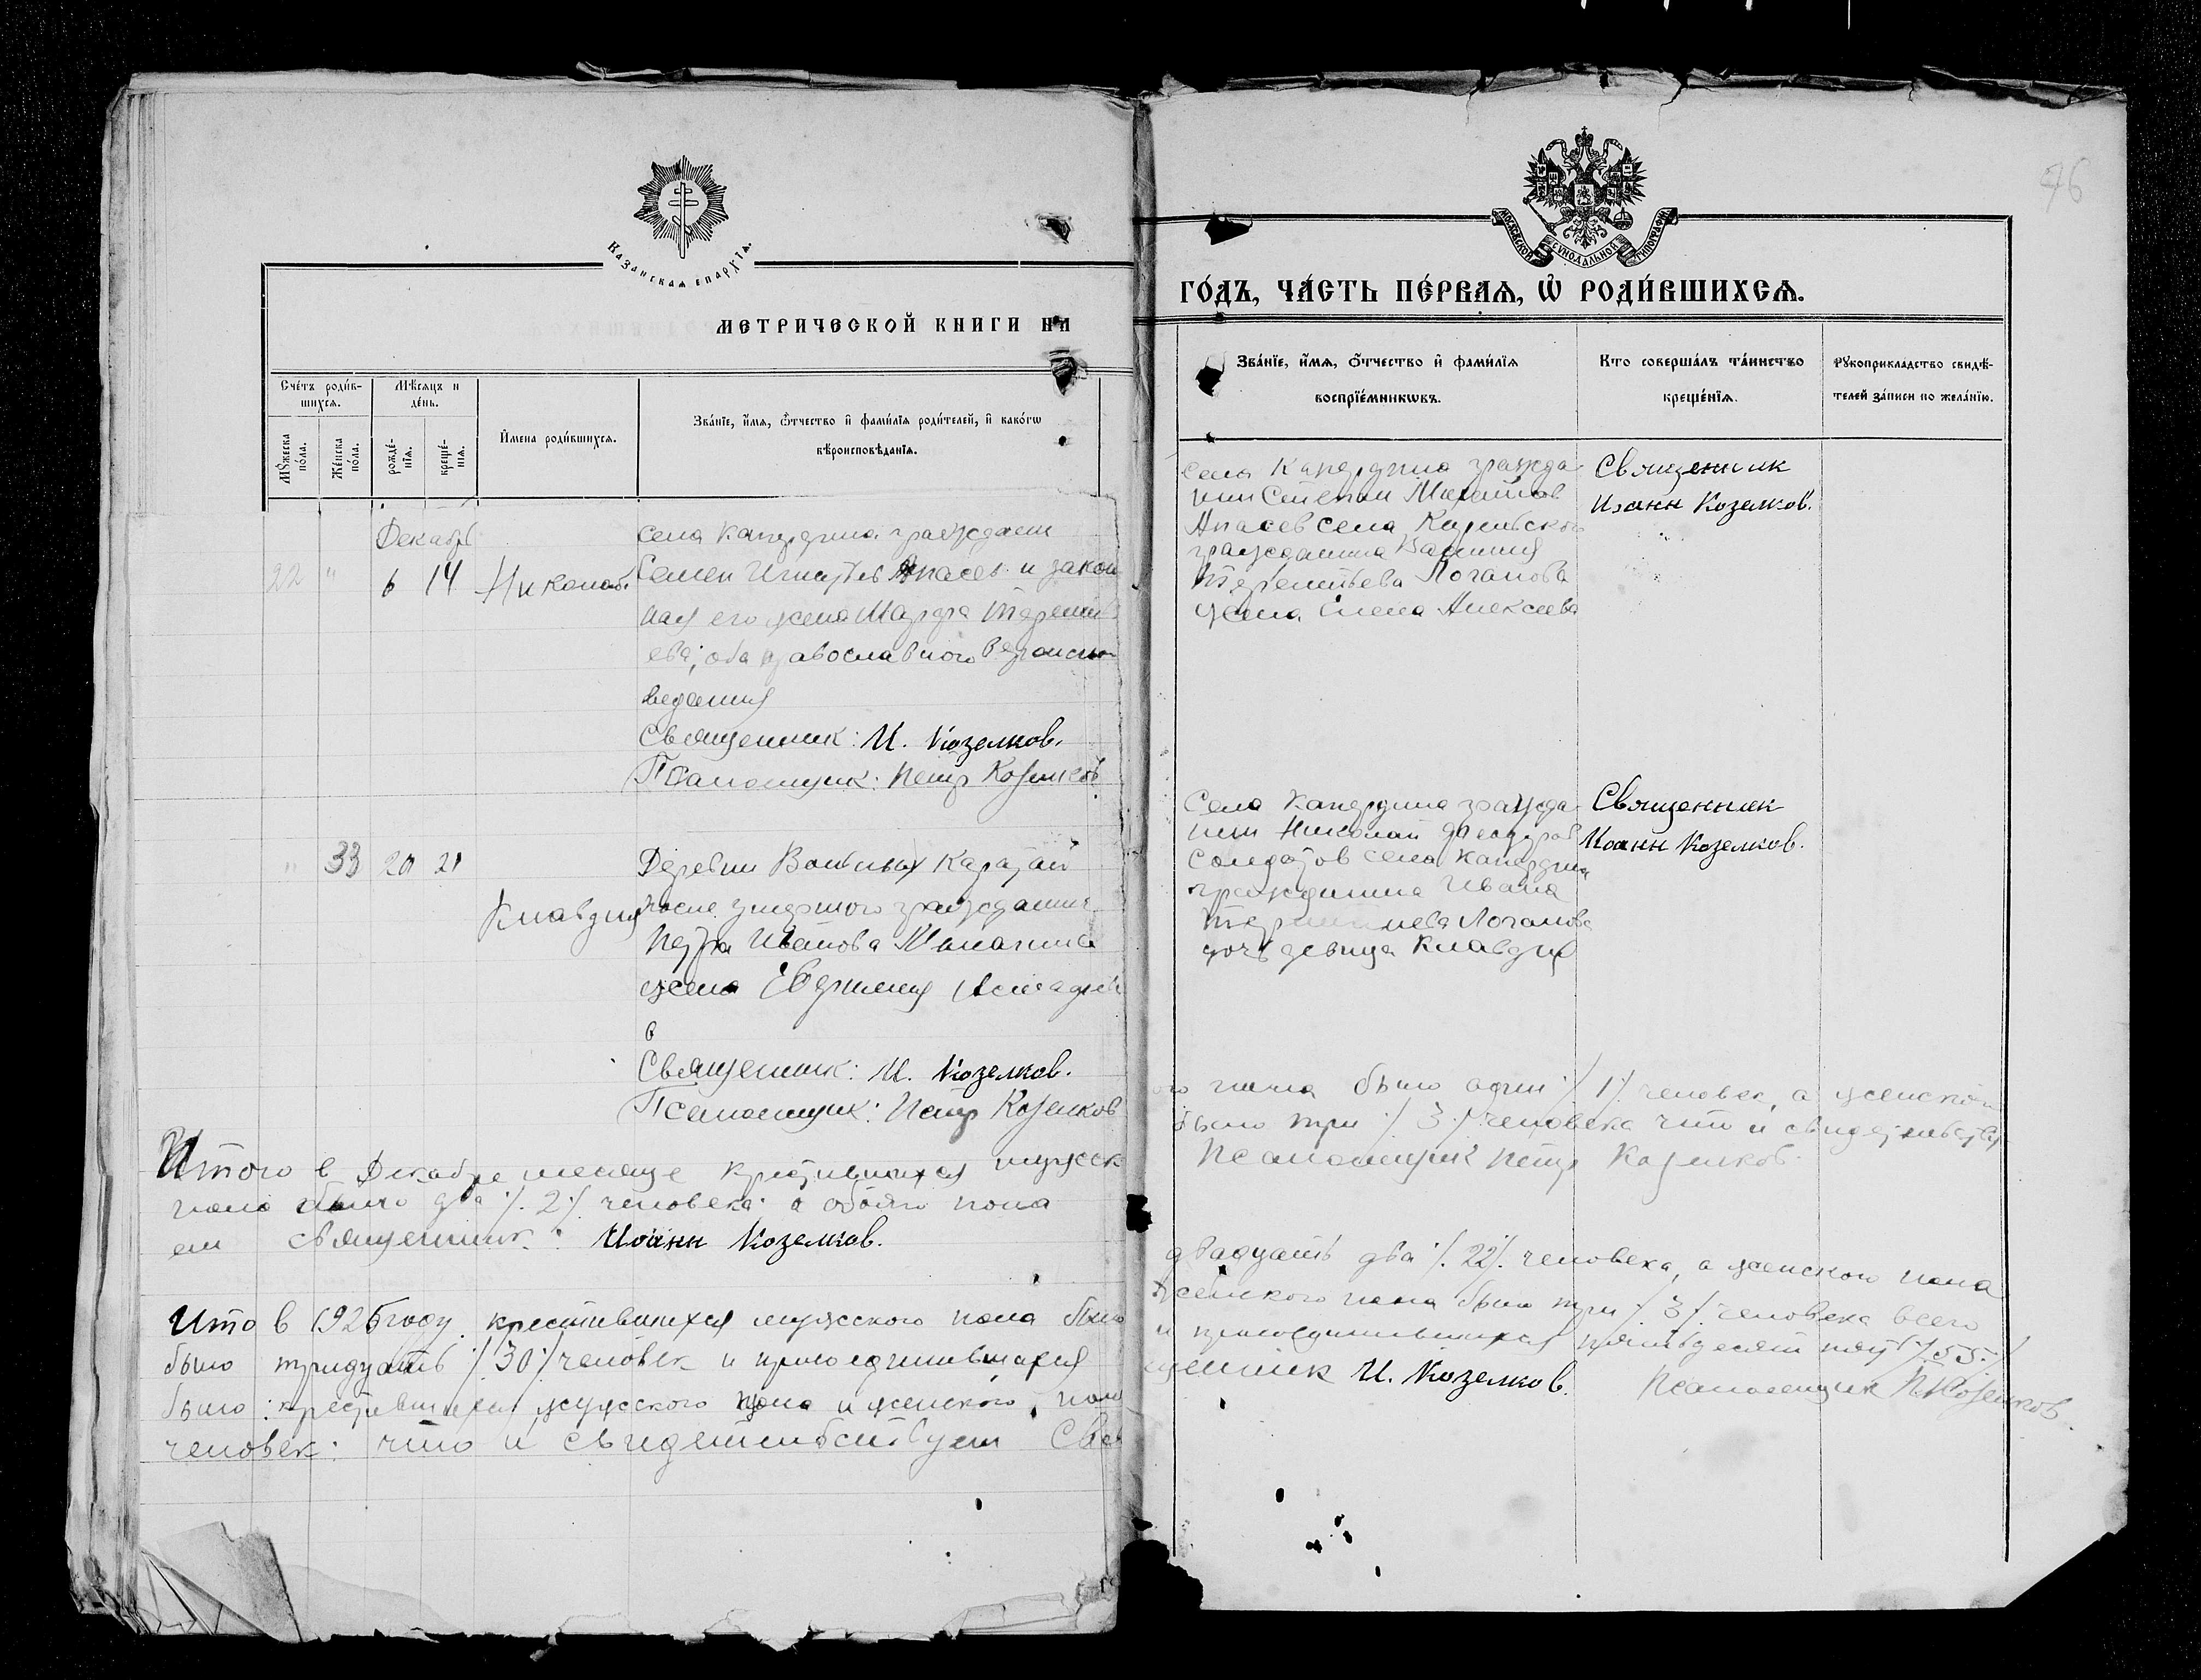 Казанская епархїѧ.
МЕТРИЧЕСКОЙ КНИГИ НА
Счéтъ роди́вшихсѧ.
Мѣ́сѧцъ и дéнь.
Мꙋ́жеска по́ла.
Же́нска по́ла.
рождé-нїѧ.
крещé-нїѧ.
И҆мена роди́вшихсѧ.
Звáнїе, и҆́мѧ, ѻ҆́тчество и҆ фами́лїѧ роди́телей, и҆ какóгѡ
вѣроисповѣ́данїѧ.
Декабрь
22 " 6 14 Николай
села Капердина гражданин
Семен Игнатьев Апасев и закон
ная его жена Марфа Теренть
ева; оба православного вероиспо
ведания
Священник: И. Козелков.
Псаломщик: Петр Козелков
" 33 20 21 Клавдия
Деревни Каратай
после умершего гражданина
Петра Иванова
жена
в
Священник: И. Козелков.
Псаломщик: Петр Козелков
Итого в Декабре месяце крестившихся мужск
пола было два ·/. 2 ·/. человека а обоего пола
ем священник: Иоанн Козелков.
Ито в 1925 году крестившихся мужского пола было
было тридцать ·/. 30 ·/. человек и присоединившихся
было: крестившихся мужского пола и женского пола
человек: что и свидетельствуем Свя
76
МОСКОВСКОЙ СѴНОДАЛЬНОЙ ТИПОГРАФІИ
ГО́ДЪ, ЧА́СТЬ ПЕ́РВАѦ, Ѡ҆ РОДИ́ВШИХСѦ.
Звáнїе, и҆́мѧ, ѻ҆́тчество и҆ фами́лїѧ
воспрїéмникѡвъ.
Кто совершáлъ тáинство
крещéнїѧ.
Рꙋкоприкладство свидѣ́-
телей зáписи по желáнїю.
села Капердина гражда
нин Степан Михайлов
Апасев села
гражданина Василия
Терентьева Логанова
жена Елена Алексеева
Священник
Иоанн Козелков.
Села Капердина гражда
нин Николай
Солдатов села Капердина
гражданина Ивана
Логанова
дочь девица Клавдия
Священник
Иоанн Козелков.
ого пола было один ·/. 1 ·/. человек, а женского
было три ·/. 3 ·/. человека что и свидетельству
Псаломщик Петр Козелков.
двадцать два ·/. 22 ·/. человека, а женского пола
женского пола было три ·/. 3 ·/. человека всего
и присоединившихся пятьдесят пять ·/. 55 ·/.
щенник И. Козелков. Псаломщик П. Козелков.